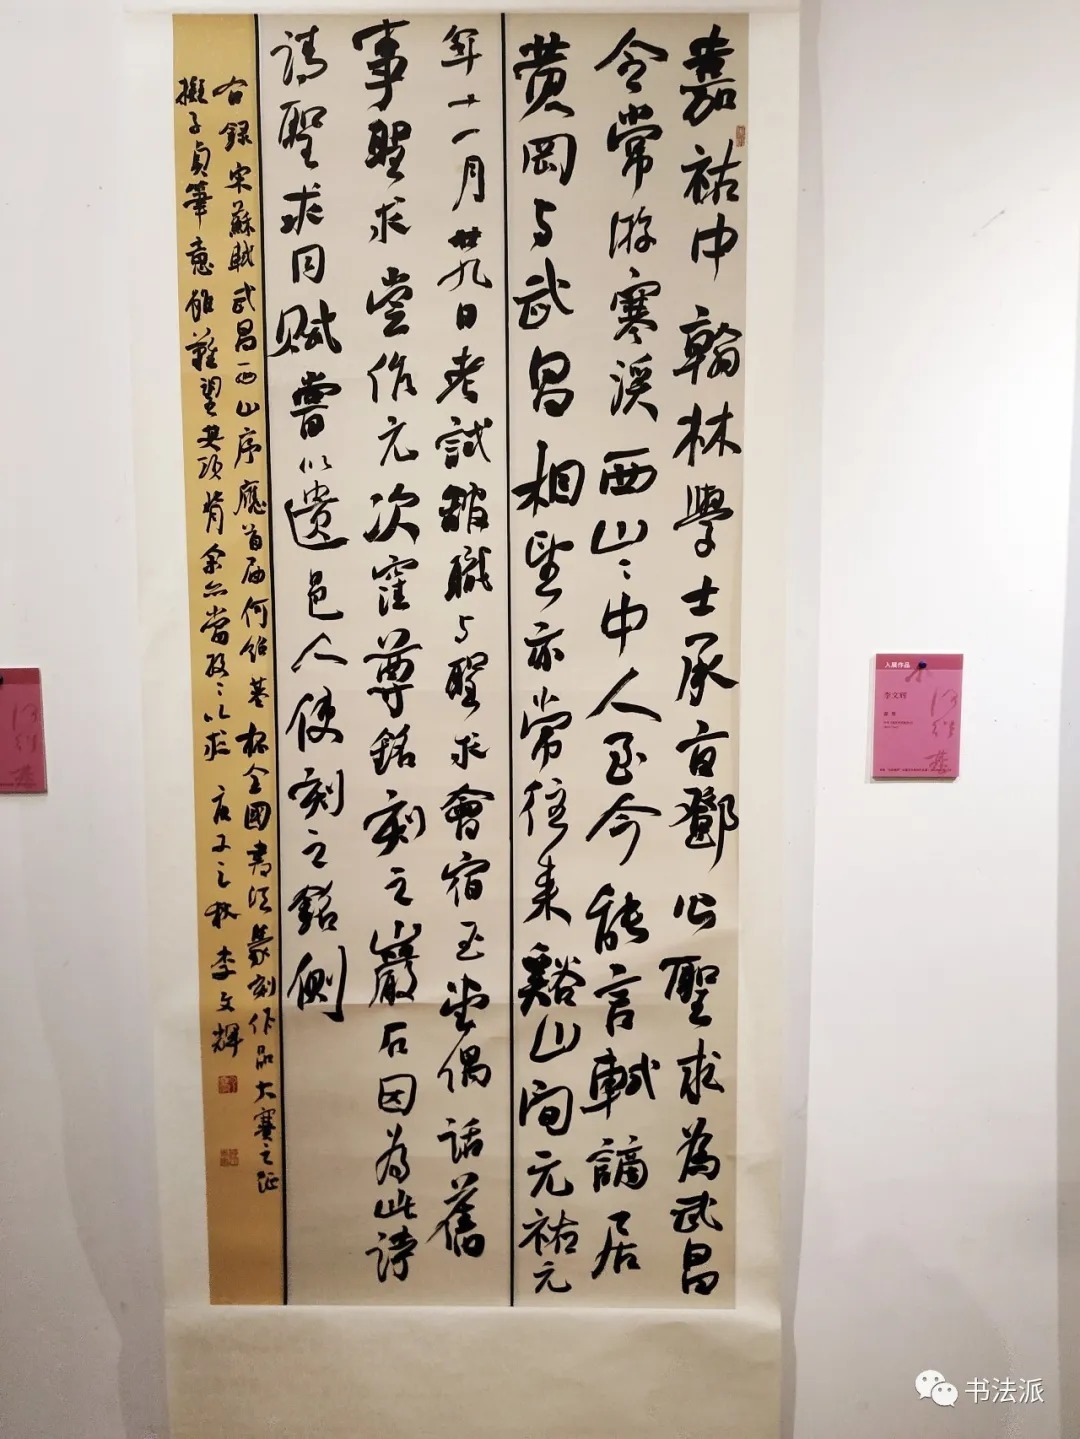 嘉祐中翰林學士承旨鄧公聖求為武昌
令常游寒溪西山山中人至今能言軾謫居
黄岡与武昌相望亦常往来谿山间元祐元
年十一月廿九日考試舘職与聖求會宿玉堂偶話舊
事聖求嘗作元次窪尊銘刻之巖石因為此詩
請聖求同赋嘗以遺邑人使刻之銘側
右録宋蘇軾武昌西山序應首届何紹基杯全國書法篆刻作品大賽之征
擬子貞筆意雖難望其項背余亦當孜孜以求
李文輝
入展作品
李文辉
书法派